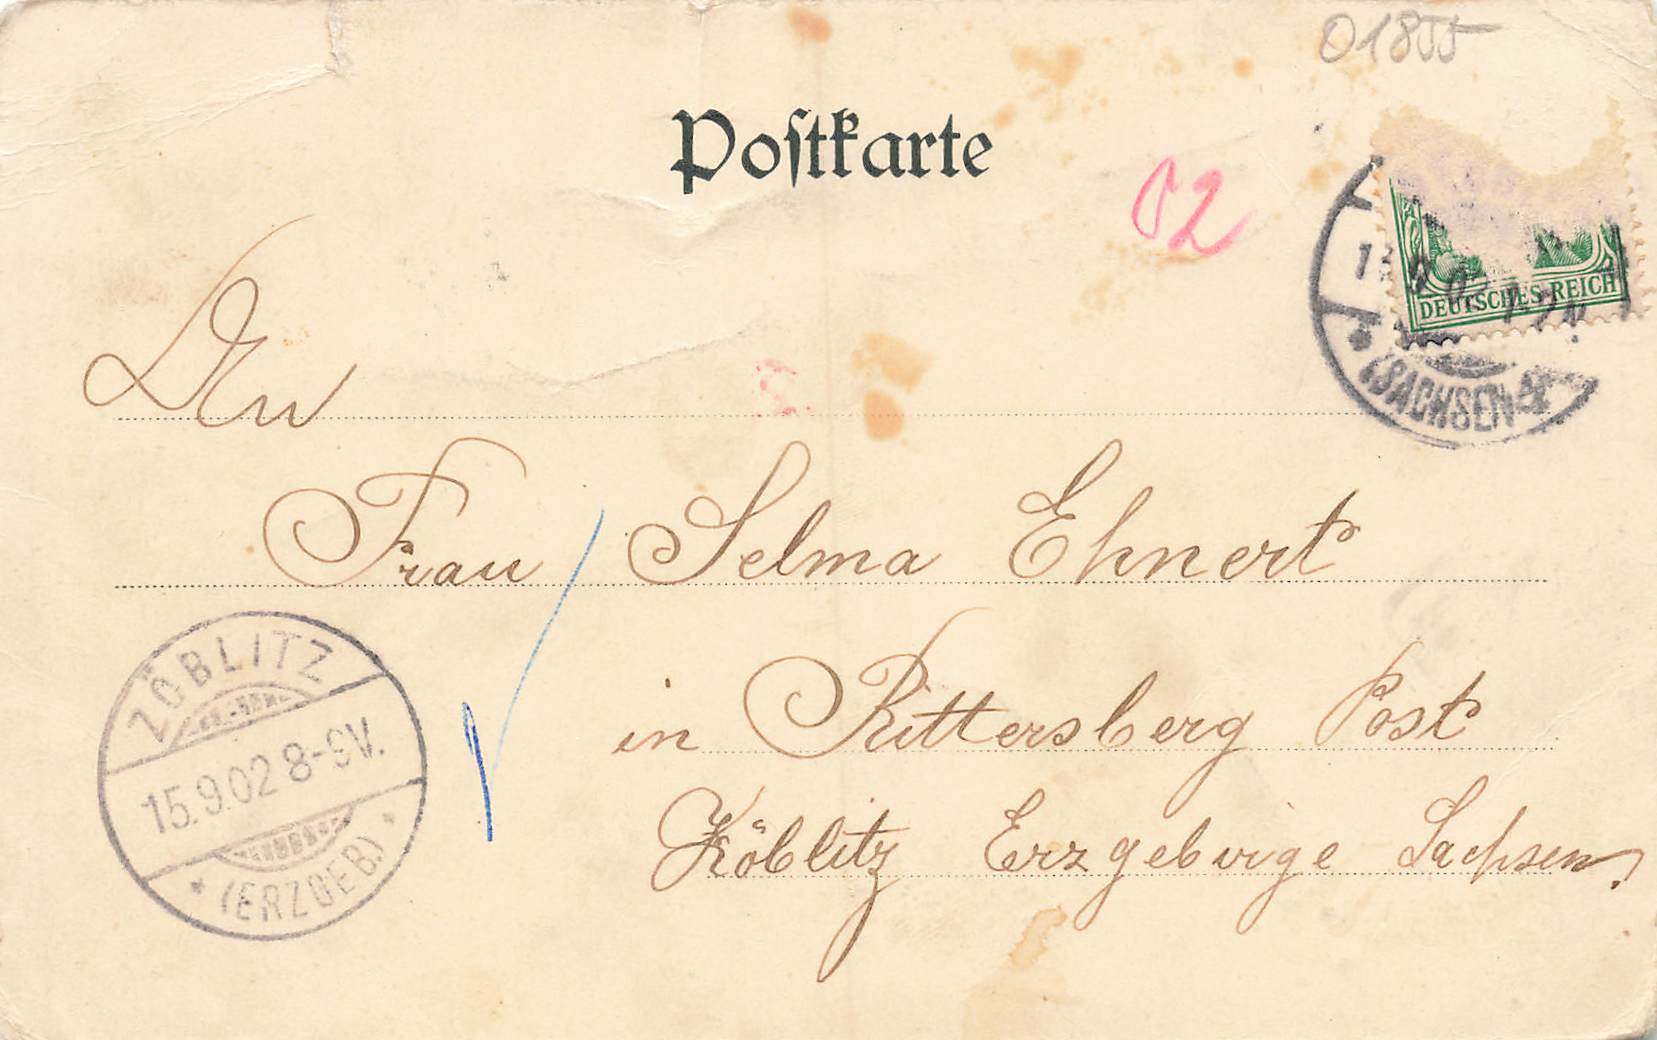 01855
Postkarte
02
DEUTSCHES REICH
(SACHSEN)
An
Frau Selma Ehnert
in Rittersberg Post
Zöblitz Erzgebirge Sachsen.
ZÖBLITZ
15.9.02 8-9V.
* (ERZGEB.) *